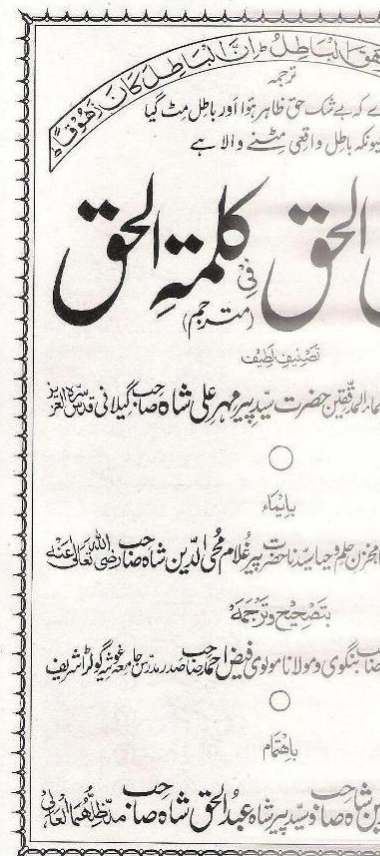 هَقَ الْبَاطِلُ ط اِنَّ الْبَاطِلَ كَانَ زَهُوْقًا ط
ترجمہ
ے کہ بے شک حق ظاہر ہوا اور باطل مٹ گیا
یونکہ باطل واقعی مٹنے والا ہے
الحق فِیْ کلمتہِ الحق
(مترجم)
تصنیفِ لطیف
ماء المدققین حضرت سید پیر مہر علی شاہ صاحب گیلانی قدس سرہ العزیز
بایماء
مخزن حلم و حیا سیدنا حضرت پیر غلام محی الدین شاہ صاحب رضی اللہ تعالیٰ عنہ
بتصحیح و ترجمہ
صاحب بنگوی و مولانا مولوی فیض احمد صاحب صدر مدرس جامعہ غوثیہ گولڑا شریف
باہتمام
ین شاہ صاحب و سید پیر شاہ عبد الحق شاہ صاحب مدظلہما العالی